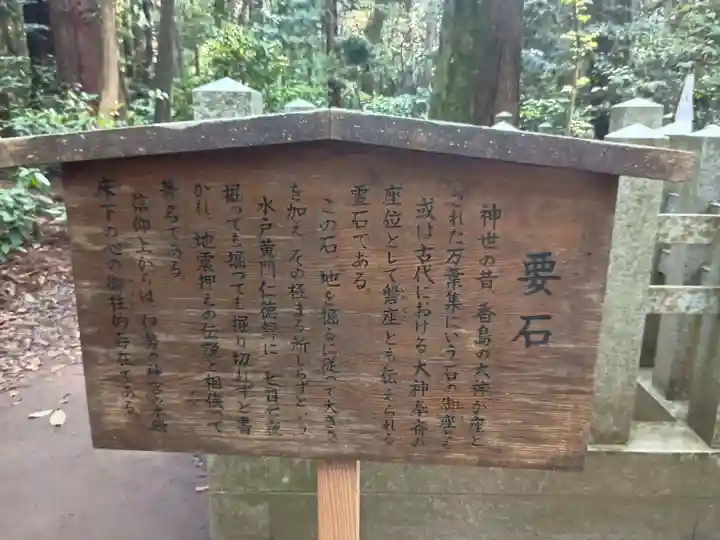 要石
神世の昔 香島の大神が座と
された万葉集にいう石の御座とも
或は古代における大神奉斎の
座位として磐座とも伝えられる
霊石である。
この石 地を掘るに従って大きさ
を加え その極まる所しらずという
水戸黄門仁徳録に 七日七夜
掘っても掘っても掘り切れずと書
かれ、地震押えの伝説と相俟って
著名である
信仰上からは 伊勢の神宮の本殿
床下の心の御柱的存在である